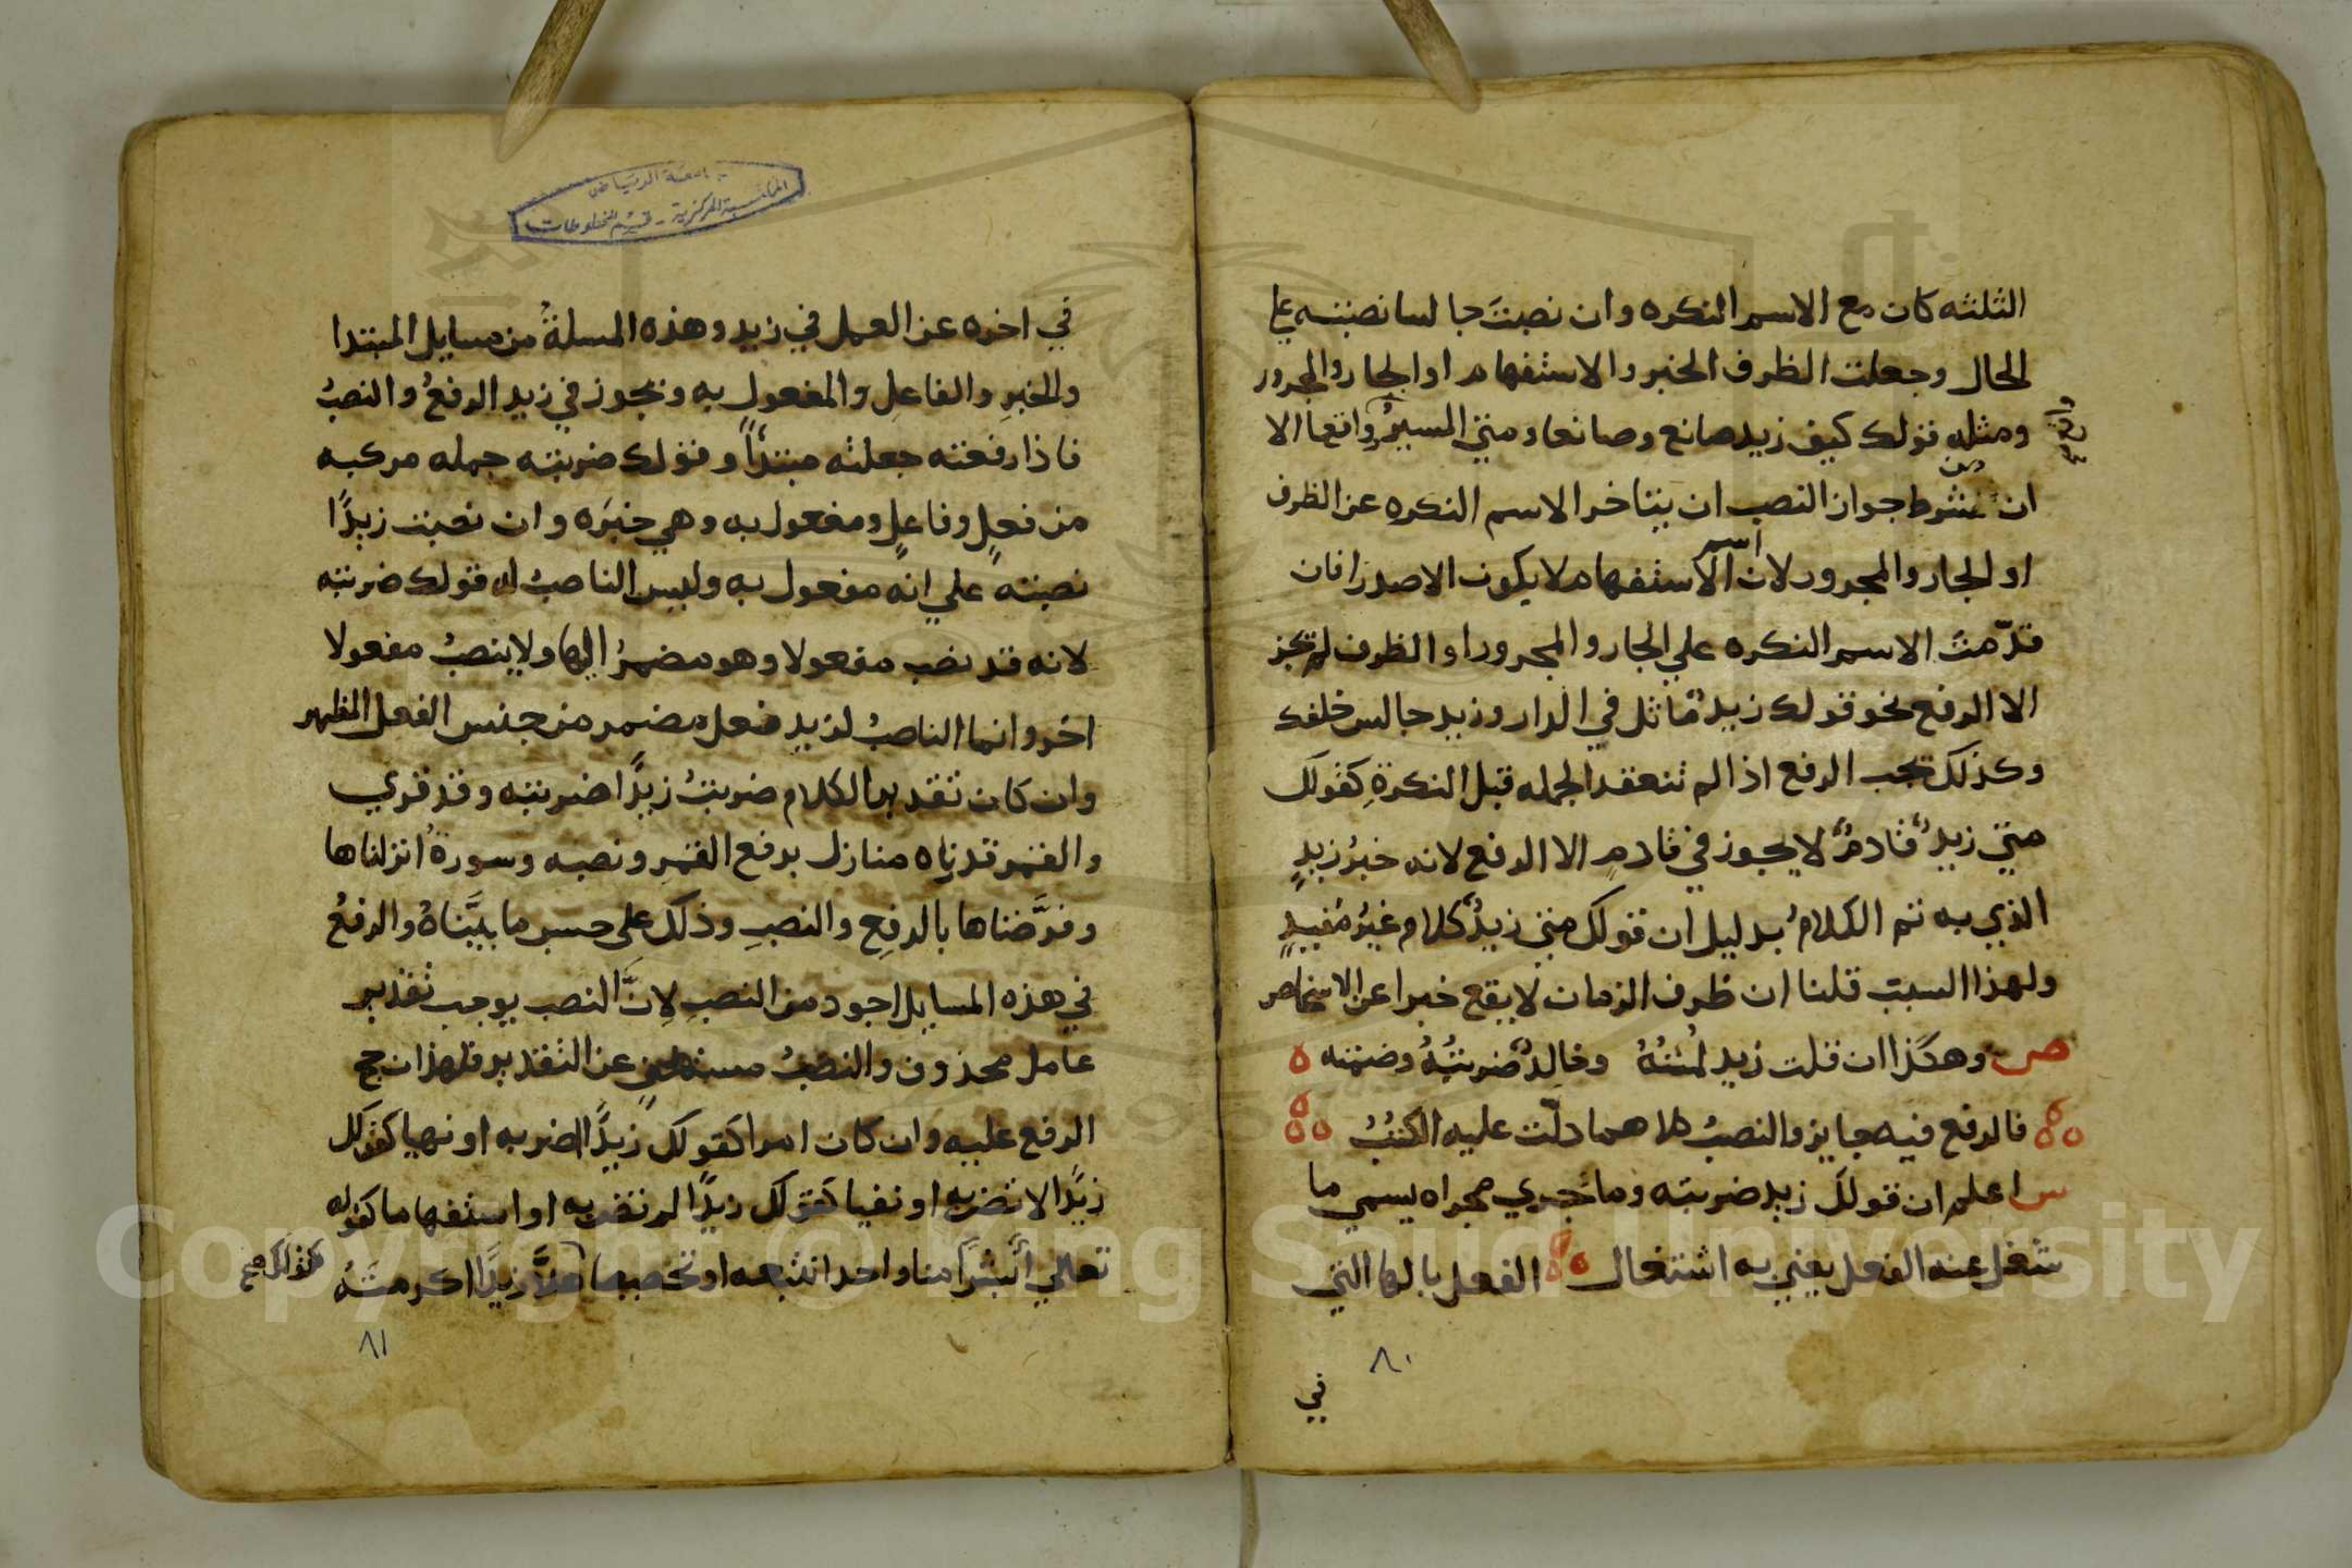 الثلثه كان مع الاسم النكره وان نصبتَ جالسا نصبته علي
الحال وجعلت الظرف الخبر والاستفهام او الجار والمجرور
ومثله قولك كيف زيد صانع وصانعا ومتي المسيرُ واقعا الا
ان من شرط جواز النصب ان يتاخر الاسم النكره عن الظرف
او الجار والمجرور لان اسم الاستفهام لا يكون الا صدرا فان
قدّمتَ الاسم النكره علي الجار والمجرور او الظرف لم تجز
الا الرفع نحو قولك زيدٌ ماثل في الدار وزيد جالس خلفك
وكذلك يجب الرفع اذا لم تنعقد الجمله قبل النكرةِ كقولك
متي زيدٌ قادمٌ لا يجوز في قادم الا الرفع لانه خبرُ زيدٍ
الذي به تم الكلامُ بدليل ان قولك متي زيدٌ كلام غيرُ مفيدٍ
ولهذا السبب قلنا ان ظرف الزمان لا يقع خبرا عن الاشخاص
ص وهكذا ان قلت زيد لُمْتُهُ وخالدٌ ضربتُهُ وضمته
فالرفع فيه جايز والنصبُ كلاهما دلّت عليه الكتبُ
س اعلم ان قولك زيد ضربته وما يجري مجراه يسمي ما
شغل عنه الفعل يعني به اشتغال الفعل بالها التي
٨٠
في
جامعة الرياض
المكتبة المركزية - قسم المخطوطات
في اخره عن العمل في زيد وهذه المسلةُ من مسايل المبتدا
والخبرِ والفاعلِ والمفعولِ به ويجوز في زيد الرفعُ والنصبُ
فاذا رفعته جعلته مبتدأً وقولك ضربته جمله مركبه
من فعلٍ وفاعلٍ ومفعول به وهي خبرَه وان نصبت زيدًا
نصبته علي انه مفعول به وليس الناصبُ له قولك ضربته
لانه قد نصب مفعولا وهو مضمرُ الها ولا ينصبُ مفعولا
اخر وانما الناصبُ لزيد فعل مضمر من جنس الفعل المظهر
وان كان تقدير الكلام ضربتُ زيدًا ضربته وقد قري
والقمر قدرناه منازل برفع القمرِ ونصبه وسورةٌ انزلناها
وفرَّضناها بالرفعِ والنصبِ وذلك علي حسب ما بيَّناهُ والرفعُ
في هذه المسايل اجود من النصبِ لانَّ النصب يوجب تقدير
عامل محذوف والنصبُ مستغني عن التقدير فلهذا رجح
الرفع عليه وان كان امرا كقولك زيدًا اضربه او نهيا كقولك
زيدًا لا تضربه او نفيا كقولك زيدًا لم تضربه او استفهاما كقوله
تعالي أبشرًا منا واحدا نتبعه او تحضيضا كقولك صح هلاَّ زيدًا اكرمتَهُ
٨١